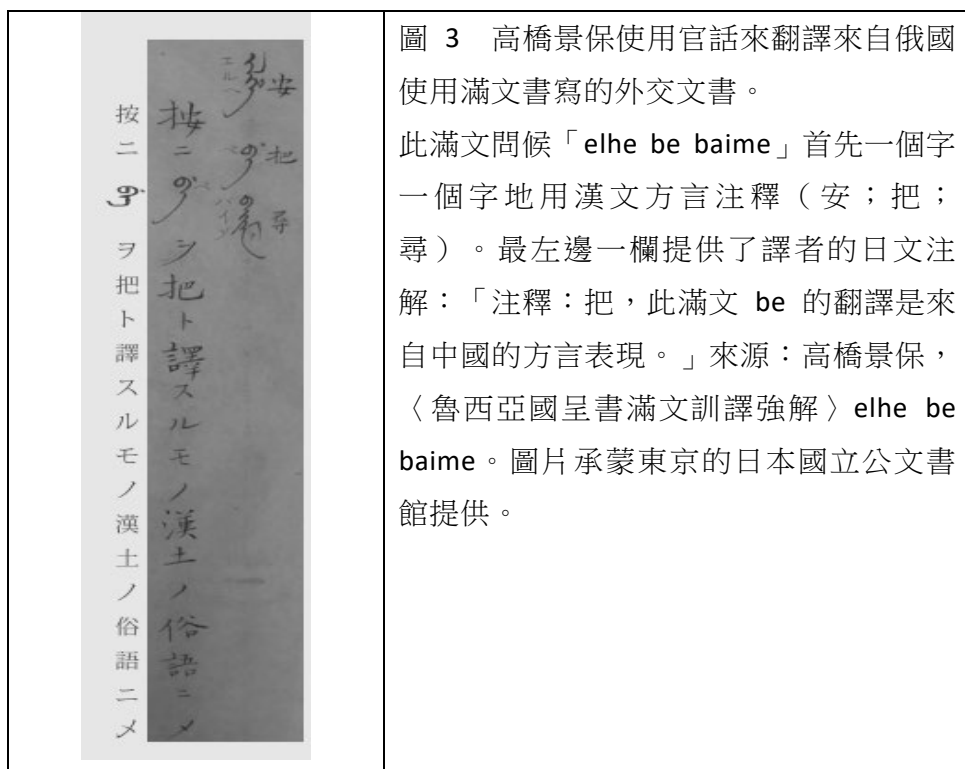 安 把 尋
ᡝᠯᡥᡝ ᠪᡝ ᠪᠠᡳᠮᡝ
エルヘ
按ニ ᠪᡝ ヲ把ト譯スルモノ漢土ノ俗語ニメ
按ニ ᠪᡝ ヲ把ト譯スルモノ漢土ノ俗語ニメ
圖 3　高橋景保使用官話來翻譯來自俄國
使用滿文書寫的外交文書。
此滿文問候「elhe be baime」首先一個字
一個字地用漢文方言注釋（安；把；
尋）。最左邊一欄提供了譯者的日文注
解：「注釋：把，此滿文 be 的翻譯是來
自中國的方言表現。」來源：高橋景保，
〈魯西亞國呈書滿文訓譯強解〉elhe be
baime。圖片承蒙東京的日本國立公文書
館提供。